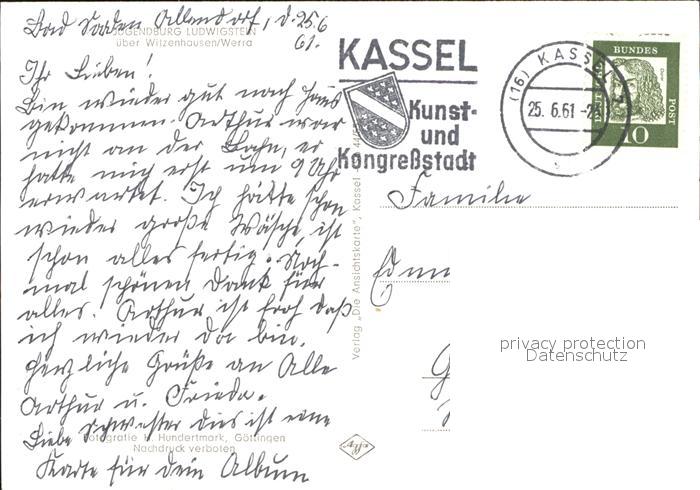 Bad Sooden Allendorf, d. 25.6
61.
JUGENDBURG LUDWIGSTEIN
über Witzenhausen/Werra
Ihr Lieben!
Bin wieder gut nach Haus
gekommen. Arthur war
nicht an der Bahn, er
hatte mich erst um 9 Uhr
erwartet. Ich hätte schon
wieder große Wäsche, ist
schon alles fertig. Noch-
mal schönen Dank für
alles. Arthur ist froh daß
ich wieder da bin.
Herzliche Grüße an Alle
Arthur u. Frieda.
Liebe Schwester dies ist eine
Karte für dein Album
Fotografie H. Hundertmark, Göttingen
Nachdruck verboten
Verlag „Die Ansichtskarte", Kassel
Agfa
KASSEL
Kunst-
und
Kongreßstadt
(16) KASSEL 7
25. 6. 61
BUNDES
POST
Dürer
10
Familie
privacy protection
Datenschutz